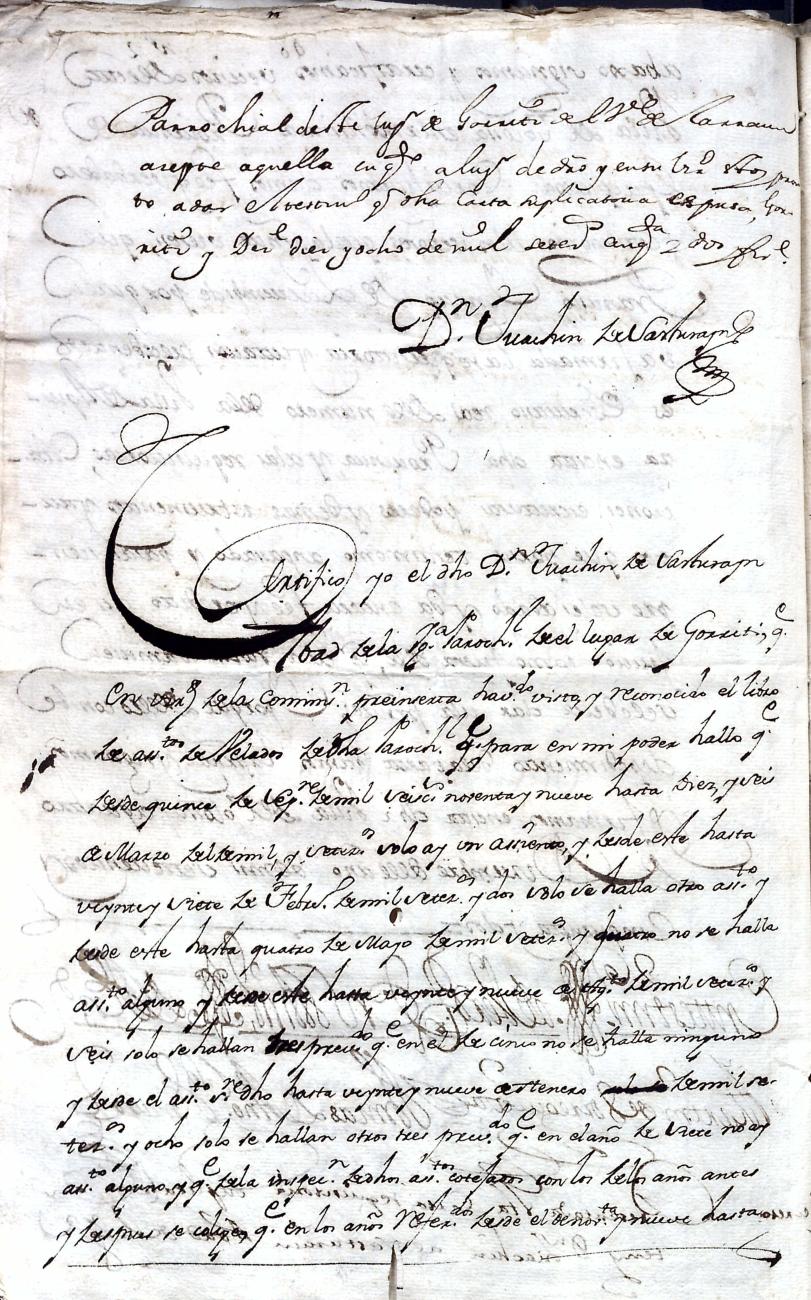 Parrochial deste lugr de Gorriti del Ve de Larraun
acepte aquella en qto a lugr de dro y en su virtd Estoy promp
to a dar el testimo q dha Carta suplicatoria expresa, Gor-
riti y Der.e diez y ocho de mil setes quarta y dos fir.e
Dn Juachin de Sasturayn
Certifico yo el dho Dn Juachin de Sasturayn
Abad de la Ygla Paroch.l de el lugar de Gorriti, q.e
en virtd de la comisn. preinserta havdo visto, y reconocido el libro
de asstos de Velados de dha Paroch.l q.e para en mi poder hallo q.e
desde quince de Sepre de mil seiscs nobenta y nueve hasta diez, y seis
de Marzo del de mil, y seters solo ay un assiento, y desde este hasta
veynte y siete de Febro. de mil seters y dos solo se halla otro assto y
desde este hasta quatro de Mayo de mil seters y quatro no se halla
assto alguno y desde este hasta veynte y nueve de Agto de mil seters y
seis solo se hallan tres prevdo q.e en el de cinco no se halla ninguno
y desde el assto sre dho hasta veynte y nueve de Henero de mil se-
ters y ocho solo se hallan otros tres prevdo q.e en el año de siete no ay
assto alguno, y q.e de la inspecn de dhos asstos cotejados con los de los años antes
y despues se colige, q.e en los años referdos desde el de novta y nueve hasta